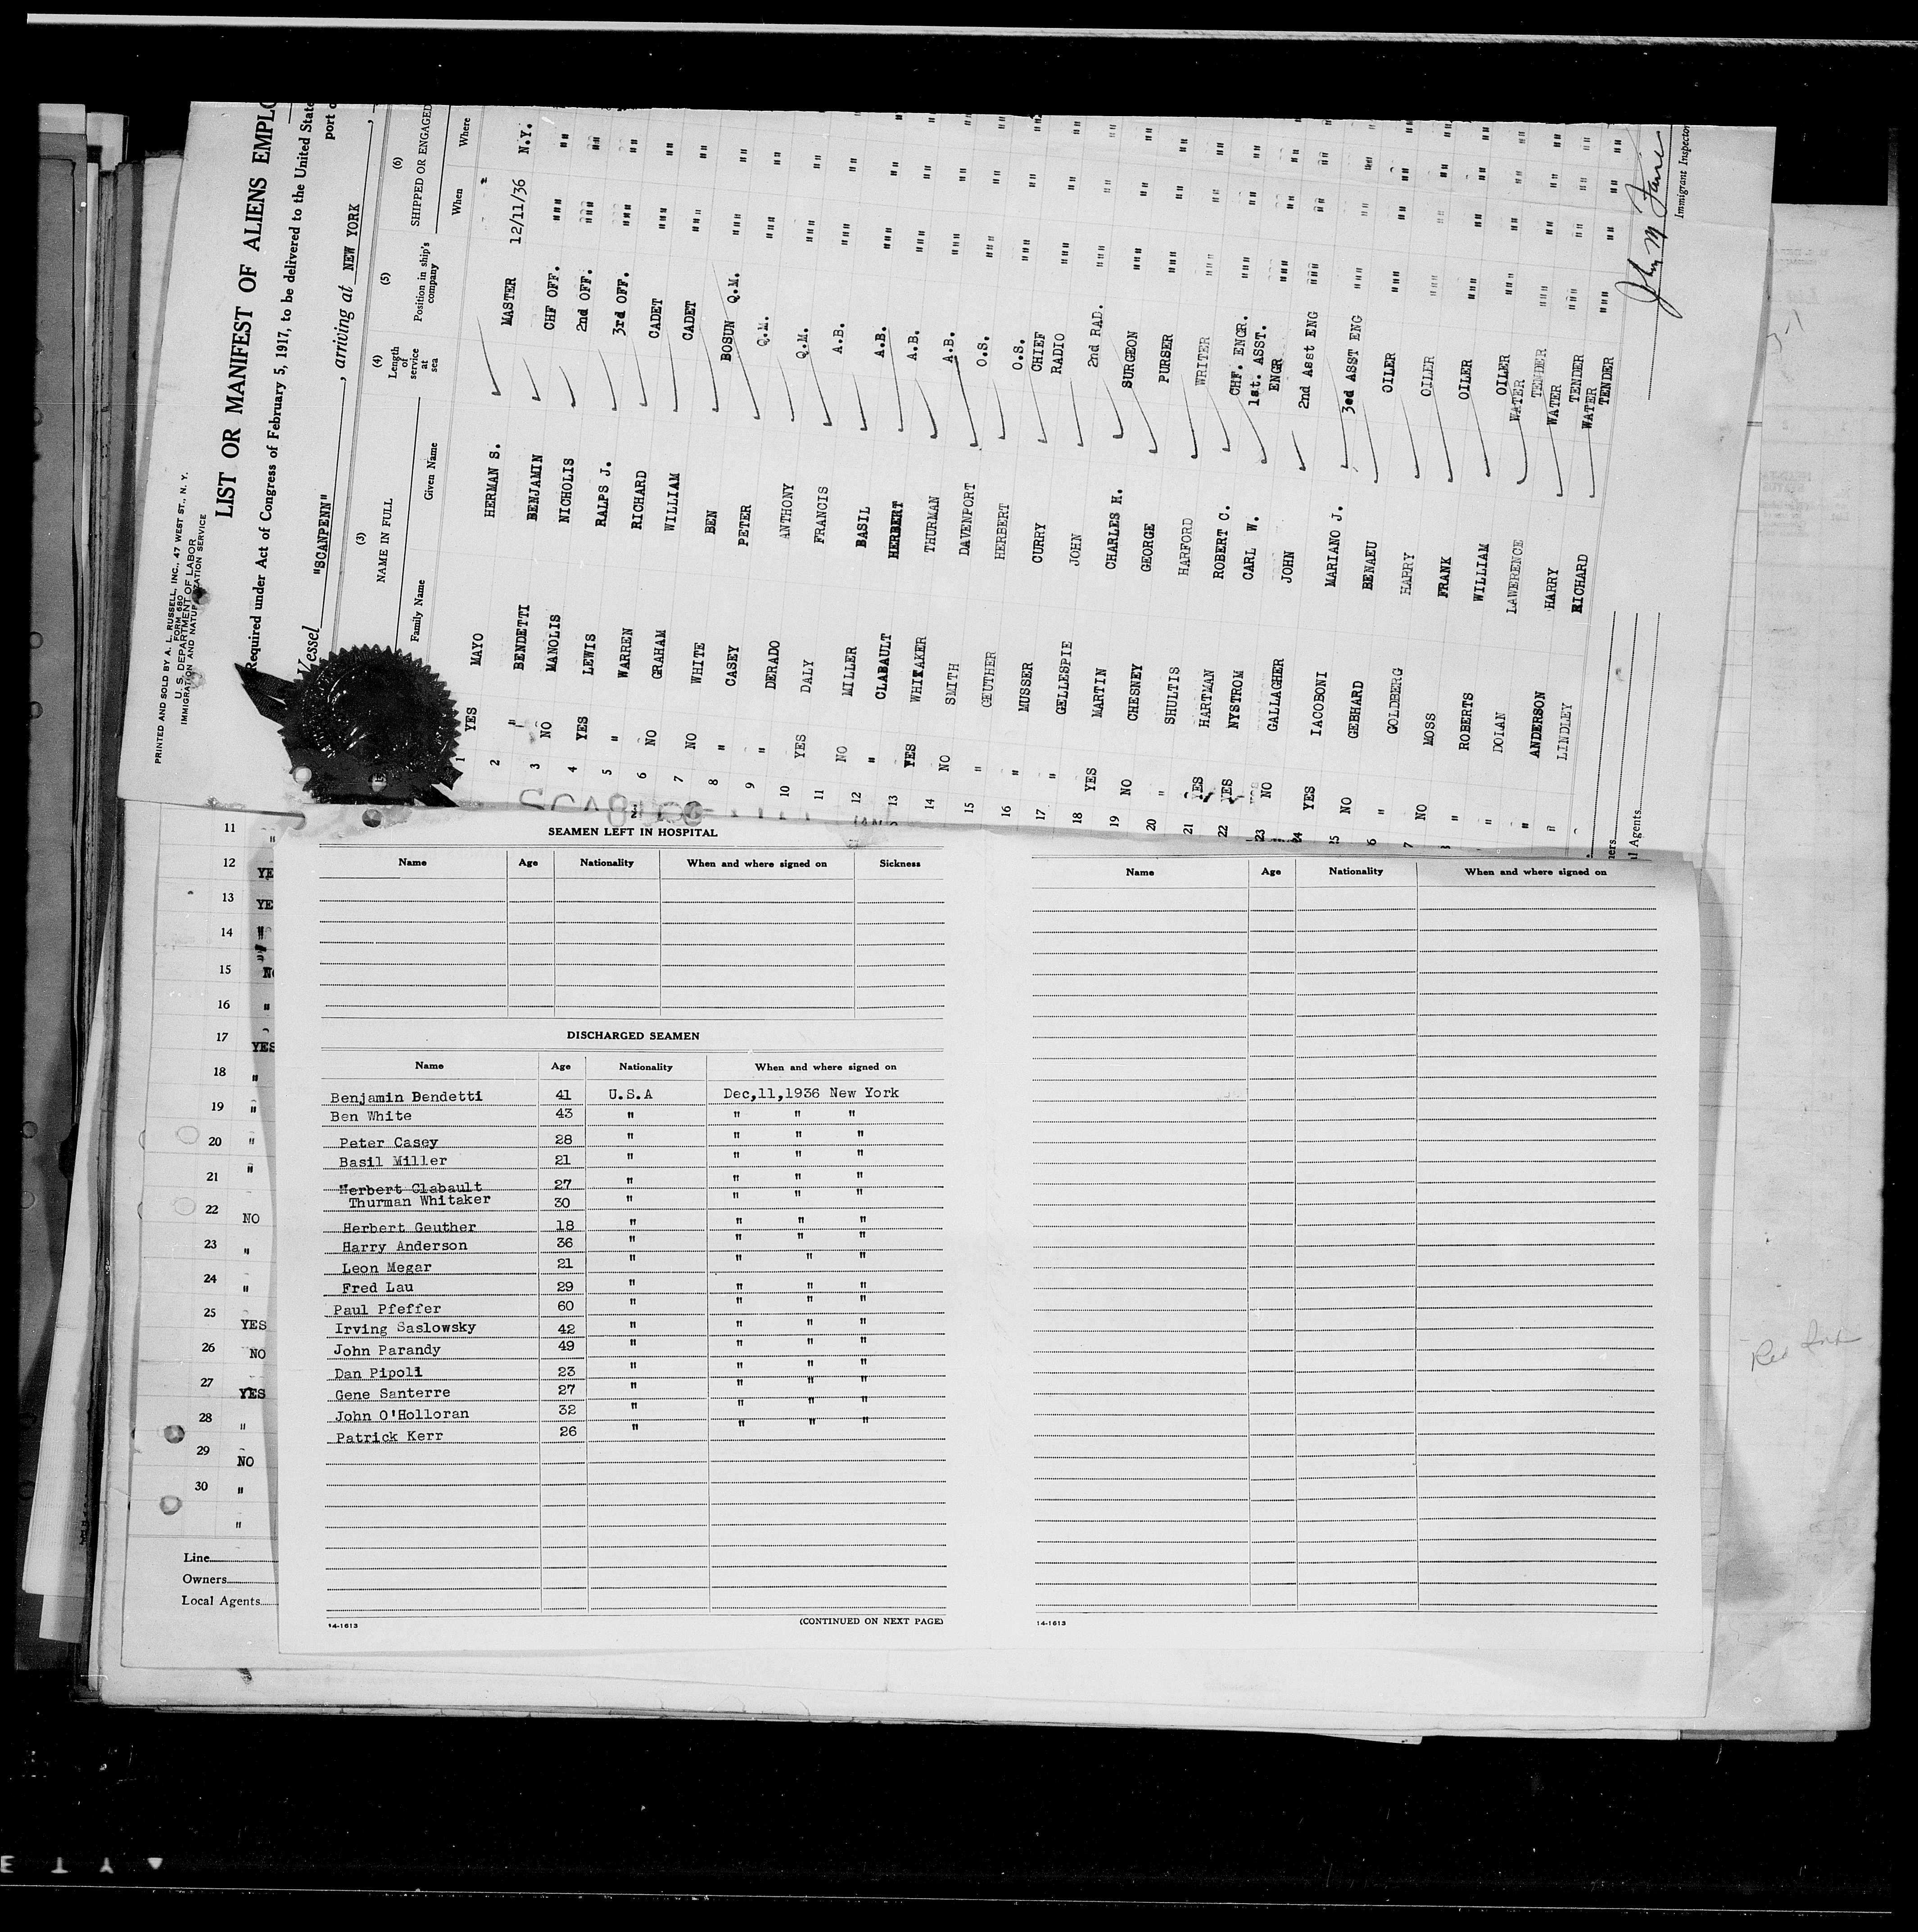 PRINTED AND SOLD BY A. L. RUSSELL, INC., 47 WEST ST., N. Y.
FORM 680
U. S. DEPARTMENT OF LABOR
IMMIGRATION AND NATURALIZATION SERVICE
LIST OR MANIFEST OF ALIENS EMPLO
Required under Act of Congress of February 5, 1917, to be delivered to the United State
port o
Vessel "SCANPENN", arriving at NEW YORK,
(3) (4) (5) (6)
NAME IN FULL Length of service at sea Position in ship's company SHIPPED OR ENGAGED
Family Name Given Name When Where
1 YES MAYO HERMAN S. MASTER 12/11/36 N.Y.
2 " BENDETTI BENJAMIN CHF OFF. """ ""
3 NO MANOLIS NICHOLIS 2nd OFF. """ ""
4 YES LEWIS RALPS J. 3rd OFF. """ ""
5 " WARREN RICHARD CADET """ ""
6 NO GRAHAM WILLIAM CADET """ ""
7 NO WHITE BEN BOSUN """ ""
8 " CASEY PETER Q.M. """ ""
9 " DERADO ANTHONY Q.M. """ ""
10 YES DALY FRANCIS Q.M. """ ""
11 NO MILLER BASIL A.B. """ ""
12 " CLABAULT HERBERT A.B. """ ""
13 YES WHITAKER THURMAN A.B. """ ""
14 NO SMITH DAVENPORT A.B. """ ""
15 " GEUTHER HERBERT O.S. """ ""
16 " MUSSER CURRY O.S. """ ""
17 " GELLESPIE JOHN CHIEF RADIO """ ""
18 YES MARTIN CHARLES H. 2nd RAD. """ ""
19 NO CHESNEY GEORGE SURGEON """ ""
20 " SHULTIS HARFORD PURSER """ ""
21 YES HARTMAN ROBERT C. WRITER """ ""
22 YES NYSTROM CARL W. CHF. ENGR. """ ""
23 NO GALLAGHER JOHN 1st. ASST. ENGR """ ""
24 YES IACOBONI MARIANO J. 2nd Asst ENG """ ""
25 NO GEBHARD BENAEU 3ed ASST ENG """ ""
6 " GOLDBERG HARRY OILER """ ""
7 NO MOSS FRANK OILER """ ""
" ROBERTS WILLIAM OILER """ ""
" DOLAN LAWERENCE OILER """ ""
" ANDERSON HARRY WATER TENDER """ ""
" LINDLEY RICHARD WATER TENDER """ ""
WATER TENDER """ ""
Immigrant Inspector
ners
l Agents
SEAMEN LEFT IN HOSPITAL
Name Age Nationality When and where signed on Sickness
DISCHARGED SEAMEN
Name Age Nationality When and where signed on
Benjamin Bendetti 41 U.S.A Dec,11,1936 New York
Ben White 43 " " " "
Peter Casey 28 " " " "
Basil Miller 21 " " " "
Herbert Clabault 27 " " " "
Thurman Whitaker 30 " " " "
Herbert Geuther 18 " " " "
Harry Anderson 36 " " " "
Leon Megar 21 " " " "
Fred Lau 29 " " " "
Paul Pfeffer 60 " " " "
Irving Saslowsky 42 " " " "
John Parandy 49 " " " "
Dan Pipoli 23 " " " "
Gene Santerre 27 " " " "
John O'Holloran 32 " " " "
Patrick Kerr 26 " " " "
14-1613 (CONTINUED ON NEXT PAGE)
Name Age Nationality When and where signed on
14-1613
11 "
12 YE
13 YE
14 "
15 NO
16 "
17 YES
18 "
19 "
20 "
21 "
22 NO
23 "
24 "
25 YES
26 NO
27 YES
28 "
29 NO
30 "
"
Line
Owners
Local Agents
Red Ink